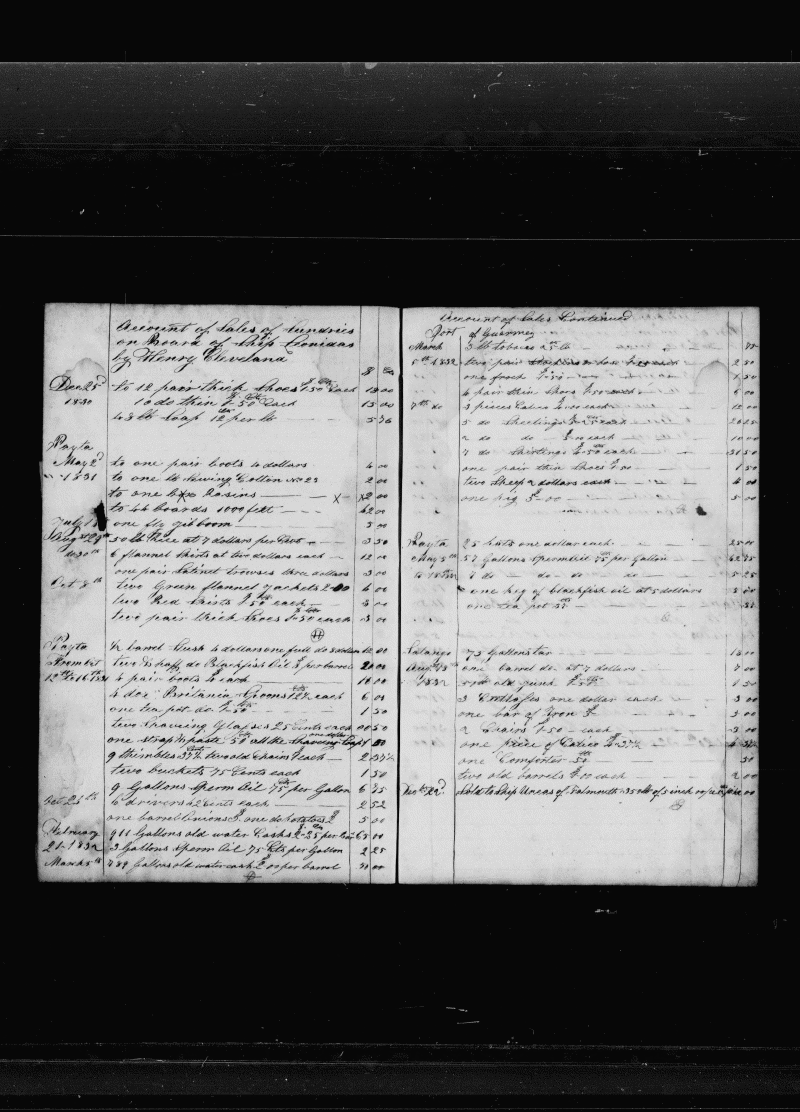 Account of Sales of Sundries
on Board of Ship Leonidas
by Henry Cleveland
$ Cts
Dec 25th to 12 pair thick Shoes $1-50 cts each 18 00
1830 10 do thin $1-50 cts each 15 00
48 lb Soap 12 cts per lb 5 76
Payta
May 2d to one pair boots 4 dollars 4 00
" 1831 to one lb Sewing Cotton No 23 2 00
to one box Rasins X X2 00
to 44 boards 1000 feet 42 00
July 18 one fly gibboom 5 00
Aug st 29th 50 lb Rice at 7 dollars per 3 50
to 30th 6 flannel shirts at two dollars each 12 00
one pair Satinet trowses three dollars 3 00
Oct 8th two Green flannel jackets 2-00 4 00
two Red Shirts $1-50 cts each 3 00
two pair thick Shoes $1-50 cts each 3 00
Payta ½ barrel Lush 4 dollars one full do 8 dollars 12 00
From 1st two & half do Blackfish Oil $8 per barrel 20 00
12th to 16th 1831 4 pair boots $4 each 16 00
4 doz Britania Spoons 12½ cts each 6 00
one tea pot do $1-50 cts 1 50
two Shaveing Glasses 25 Cents each 00 50
one strap & paste 50 cts all the Shaveing Soap one dollar 1 50
9 thimbles 37½ Cents two old Chairs $1 each 2 37½
two buckets 75 Cents each 1 50
9 Gallons Sperm Oil 75 cts per Gallon 6 75
Oct 26th 6 42 cents each 2 52
one barrel onions $3, one do Potatoes $2 5 00
Febuary 911 Gallons old water Casks $2-25 cts per 65 00
21-1832 3 Gallons Sperm Oil 75 Cts per Gallon 2 25
March 5th 789 Gallons old water cask $2 00 per barrel 00
Account of Sales Continued
Port of Guarmey
March 3 lb tobaco 25 cts lb 75
5th 1832 two pair hose each 2 50
one frock $1-50 1 50
4 pair thin Shoes $1-50 each 6 00
7th do 3 pieces Calico $4-00 each 12 00
5 do Sheetings $5-25 each 26 25
2 do do $5-00 each 10 00
7 do Shirtings $4-50 cts each 31 50
one pair thin Shoes 1 50
two Sheep 2 dollars each 4 00
one pig $5-00 5 00
Payta 25 hats one dollar each 25 00
May 5th 57 Gallons Sperm Oil 75 cts per Gallon 42 75
to 18th 7 do do do do 5 25
one keg of blackfish oil at 5 dollars 5 00
one tea pot 37 cts 37
Salango 73 Gallons tar 18 00
Aug 13th one barrel do at 7 dollars 7 00
1832 old junk $1-50 cts 1 50
3 one dollar each 3 00
one bar of Iron $3 3 00
2 Chairs $1-50 each 3 00
one Piece of Calico $4-37½ 4 37½
one Comforter 50 cts 50
two old barrels $1-00 each 2 00
Dec 22d. Sold to Ship of Falmouth 350 lb of 5 inch 00